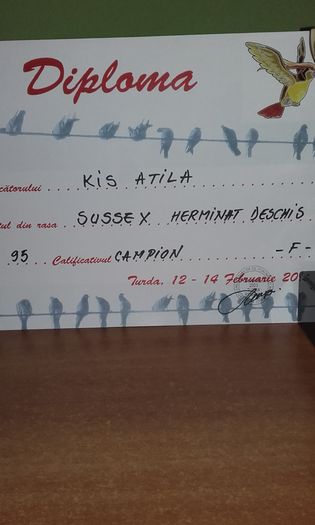 Diploma
cătorului KIS ATILA
tul din rasa SUSSEX HERMINAT DESCHIS
95 Calificativul CAMPION - F -
Turda, 12 - 14 Februarie 20